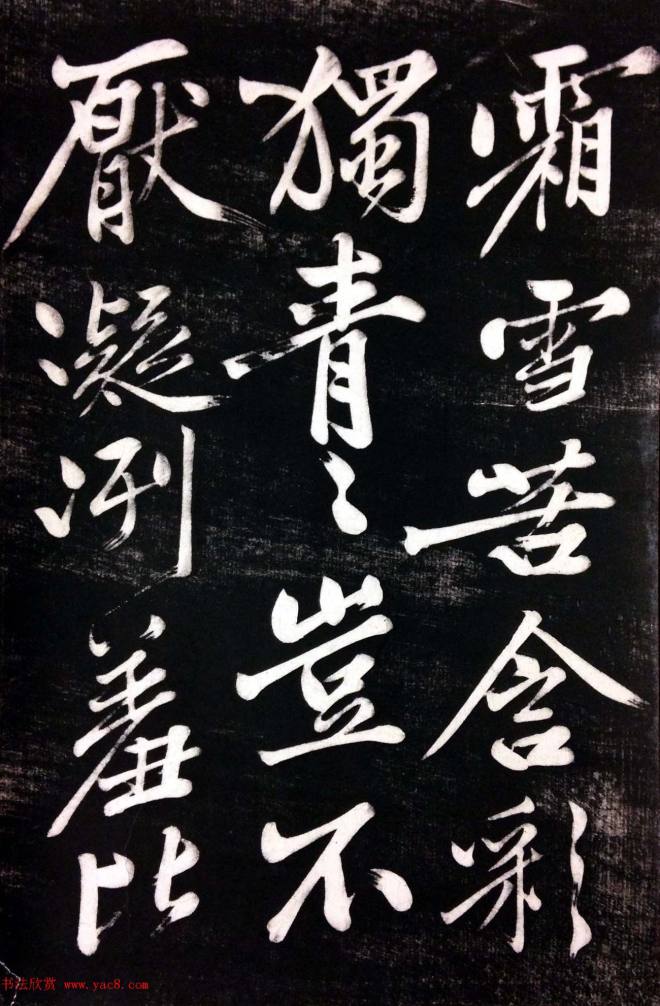 霜雪苦含彩
獨青〻豈不
厭凝冽羞比
书法欣赏 www.yac8.com